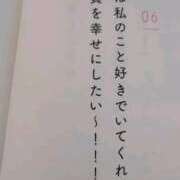 06
は私のこと好きでいてくれ
貴を幸せにしたい〜!!!